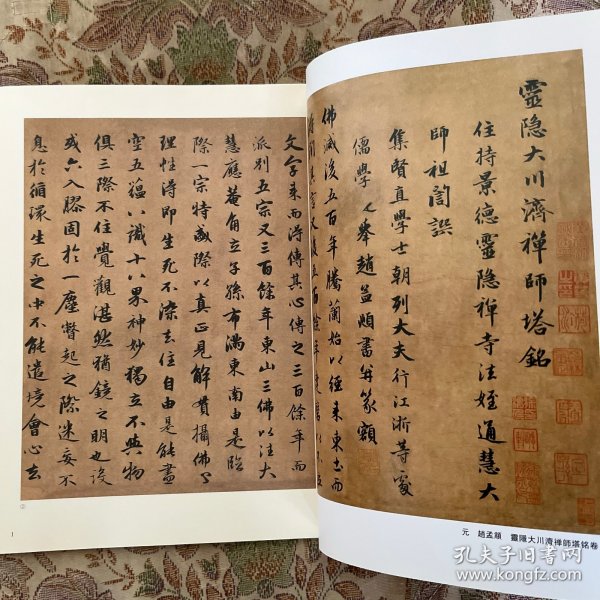 靈隐大川濟禪師塔銘
住持景德靈隐禪寺法姪通慧大
師祖誾譔
集賢直學士朝列大夫行江浙等處
儒學提舉趙孟頫書并篆額
佛滅後五百年騰蘭始以經来東土而
文字来而得傳其心傳之三百餘年而
派別五宗又三百餘年東山三佛以法大
慧應菴角立子孫布滿東南由是臨
際一宗特盛際以真正見解貫攝佛
理性得即生死不染去住自由是能盡
空五藴八識十八界神妙獨立不與物
俱三際不住覺觀湛然猶鏡之明也設
或六入膠固於一塵瞥起之際迷妄不
息於循環生死之中不能遣境會心去
元 趙孟頫 靈隱大川濟禪師塔铭卷
②
1
孔夫子旧书网
www.kongfz.com